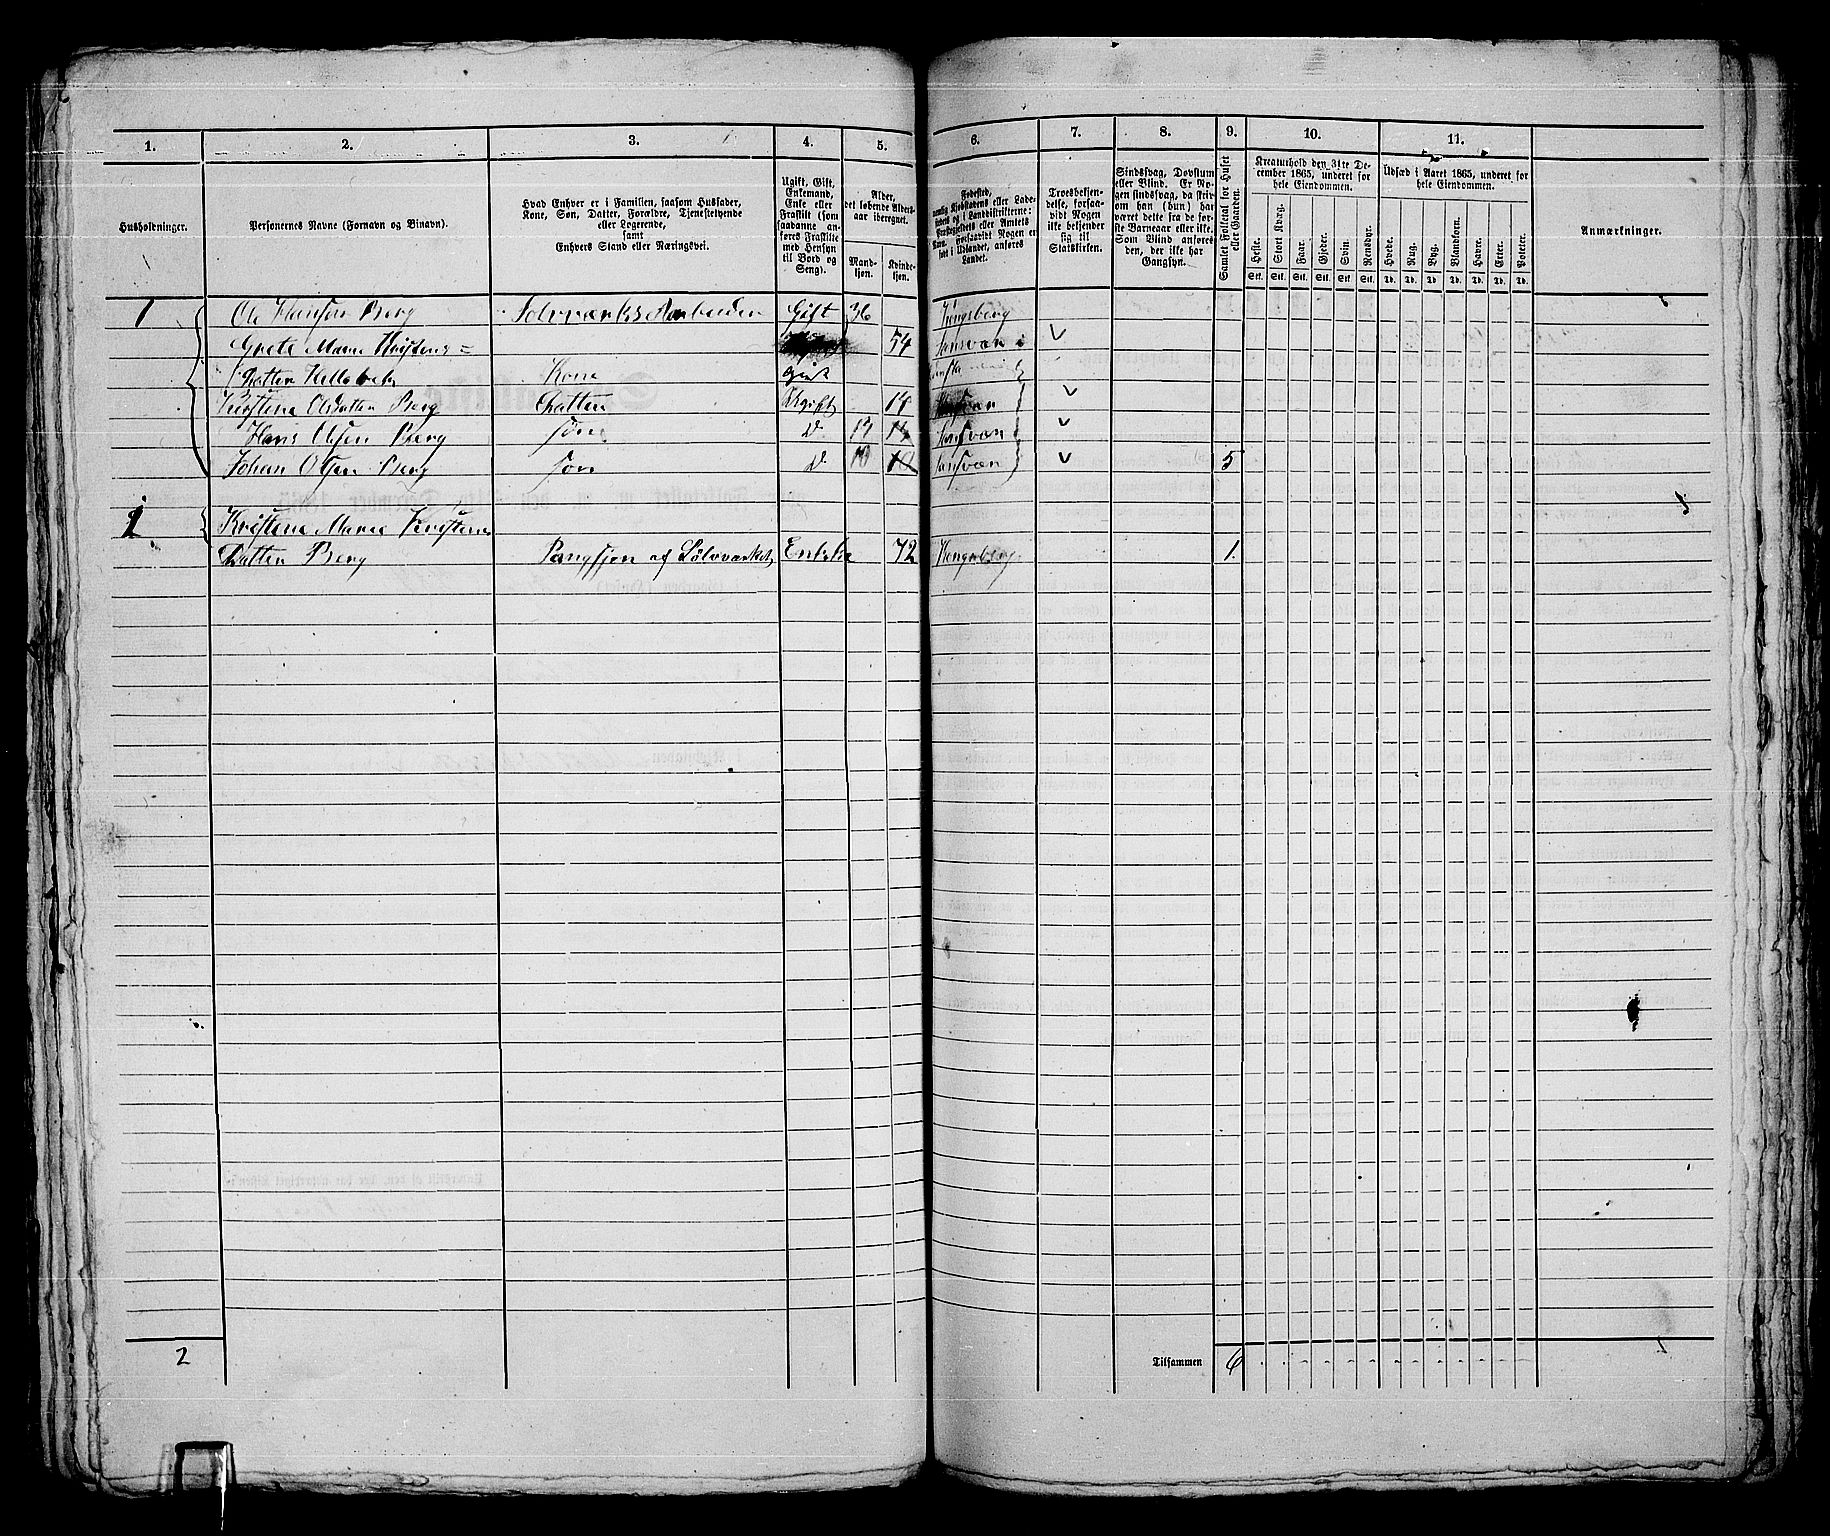 1. 2. 3. 4. 5. 6. 7. 8. 9. 10. 11.
Husholdninger.
Personernes Navne (Fornavn og Binavn).
Hvad Enhver er i Familien, saasom Husfader,
Kone, Søn, Datter, Forældre, Tjenestetyende
eller Logerende,
samt
Enhvers Stand eller Næringsvei.
Ugift, Gift,
Enkemand,
Enke eller
Fraskilt (som
saadanne an-
føres Fraskilte
med Hensyn
til Bord og
Seng).
Alder,
det løbende Alders-
aar iberegnet.
Mand-
kjøn.
Kvinde-
kjøn.
Fødested,
nemlig Kjøbstadens eller Lade-
stedets og i Landdistrikterne:
Præstegjeldets eller Amtets
Navn. Forsaavidt Nogen er
født i Udlandet, anføres
Landet.
Troesbekjen-
delse, forsaa-
vidt Nogen
ikke bekjender
sig til
Statskirken.
Sindssvag, Døvstum
eller Blind. Er No-
gen sindssvag, da skriv
om han (hun) har
været dette fra de før-
ste Barneaar eller ikke.
Som Blind anføres
den, der ikke har
Gangsyn.
Samlet Folketal for Huset
eller Gaarden.
Kreaturhold den 31te De-
cember 1865, underet for
hele Eiendommen.
Heste. Stort Kvæg. Faar. Gjeder. Svin. Rensdyr.
Stk. Stk. Stk. Stk. Stk. Stk.
Udsæd i Aaret 1865, underet for
hele Eiendommen.
Hvede. Rug. Byg. Blandkorn. Havre. Erter. Poteter.
Td. Td. Td. Td. Td. Td. Td.
Anmærkninger.
1 Ole Hansen Berg Sølvværks Aarbeider Gift 36 Kongsberg
Grete Marie Kristens= 54 Sansvær
Datter Kone Gift
Kirstine Olsdatter Berg Datter Ugift 14
Hans Olsen Berg Søn D 14 14 Sansvær
Johan Olsen Berg Søn D 10 10 Sansvær 5
2 Kristene Marie Kristens
Datter Berg Pangsjon af Sølvværket Enkke 72 Kongsberg 1.
2 Tilsammen 6